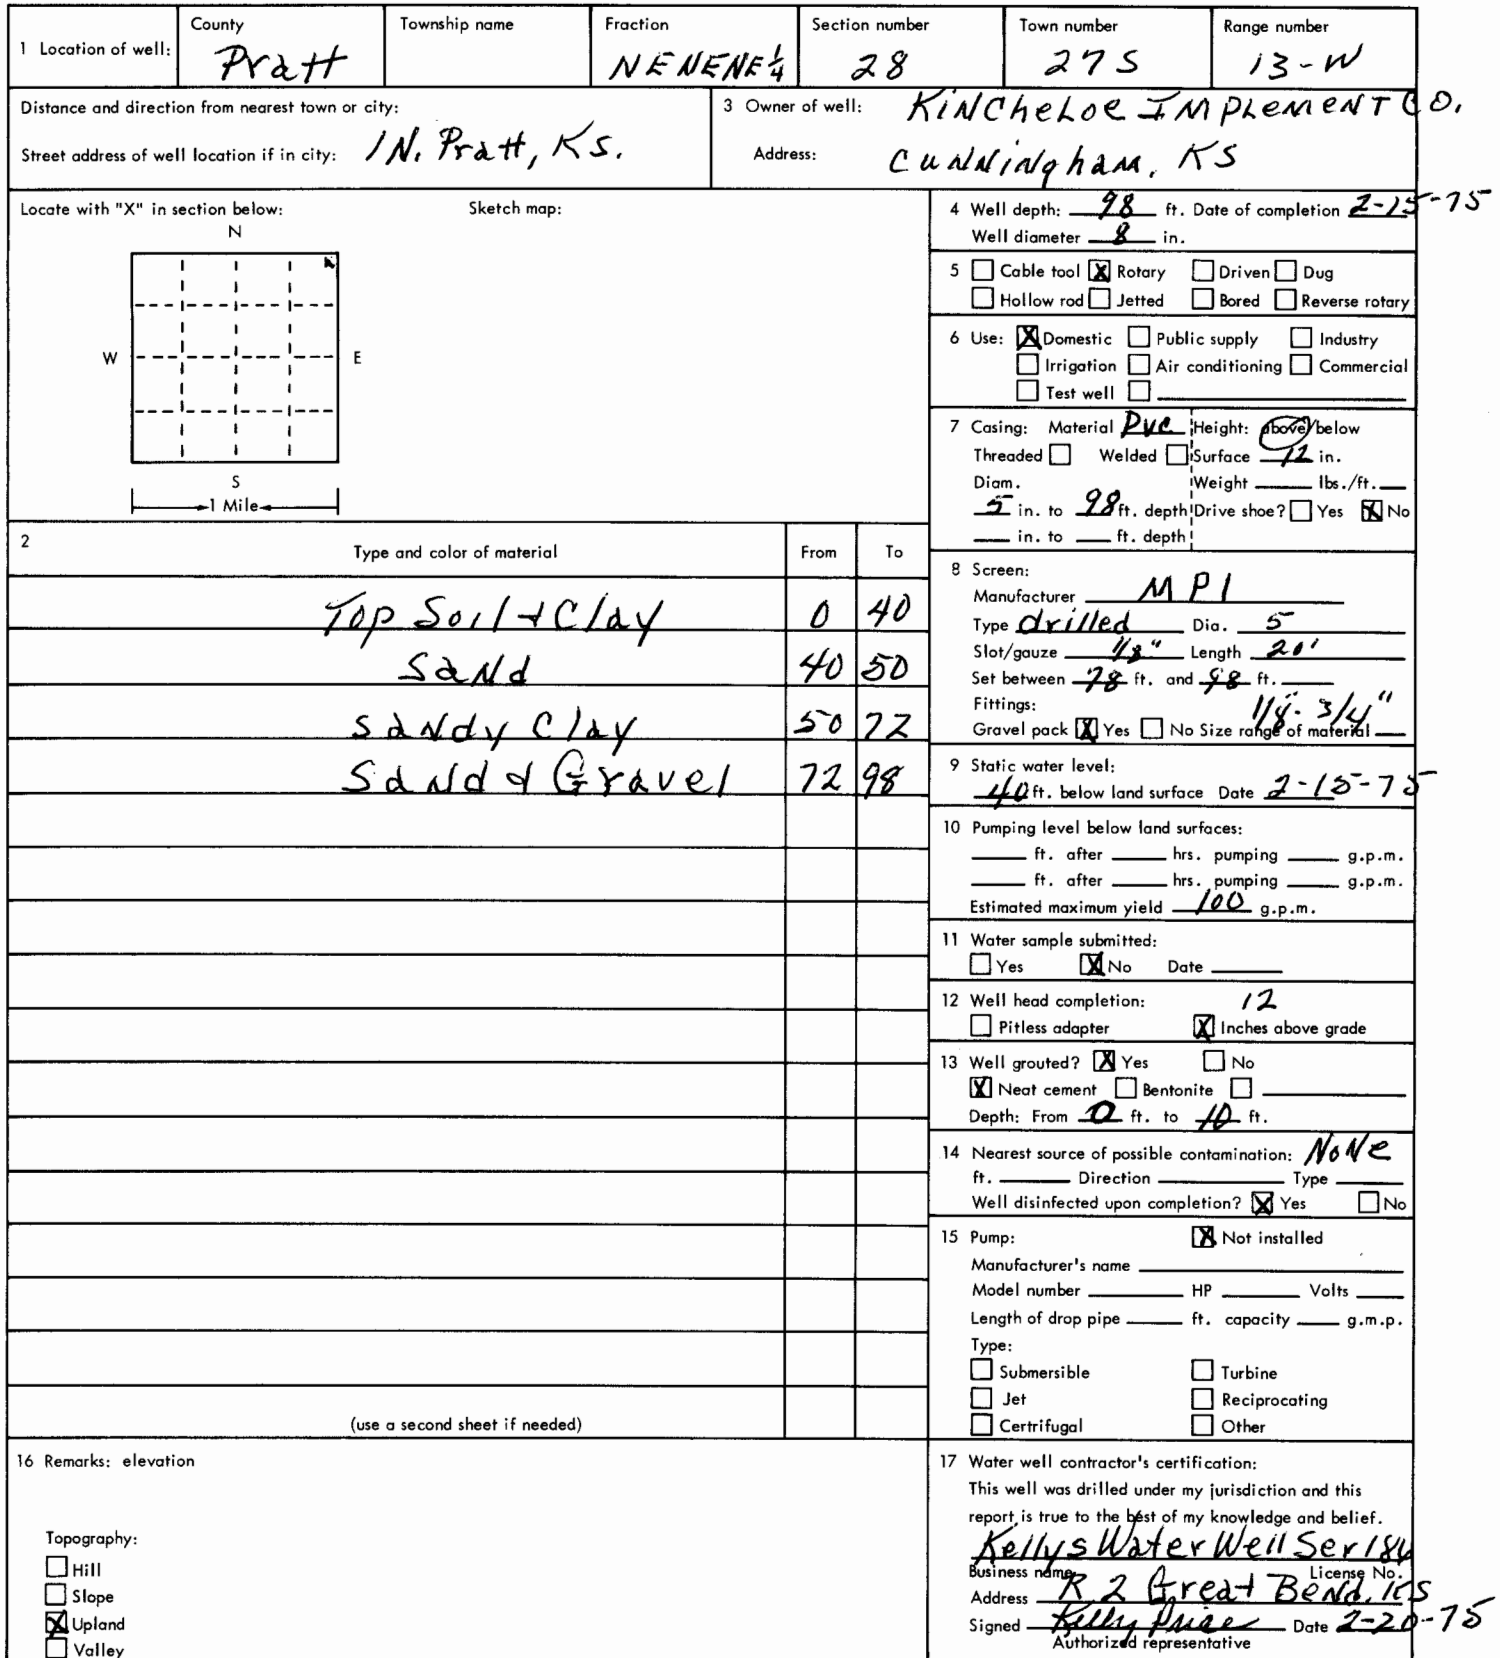 1 Location of well: County Pratt Township name Fraction NENENE¼ Section number 28 Town number 27S Range number 13-W
Distance and direction from nearest town or city:
Street address of well location if in city: IN. Pratt, Ks.
3 Owner of well: KINCheLoe IMPLeMeNT CO.
Address: CUNNINgham, KS
Locate with "X" in section below: Sketch map:
N
W E
S
1 Mile
4 Well depth: 98 ft. Date of completion 2-15-75
Well diameter 8 in.
5 ☐ Cable tool ☒ Rotary ☐ Driven ☐ Dug
☐ Hollow rod ☐ Jetted ☐ Bored ☐ Reverse rotary
6 Use: ☒ Domestic ☐ Public supply ☐ Industry
☐ Irrigation ☐ Air conditioning ☐ Commercial
☐ Test well ☐
7 Casing: Material PVC Height: above/below
Threaded ☐ Welded ☐ Surface 12 in.
Diam. Weight ____ lbs./ft. ____
5 in. to 98 ft. depth Drive shoe? ☐ Yes ☒ No
____ in. to ____ ft. depth
2 Type and color of material From To
Top Soil + Clay 0 40
Sand 40 50
Sandy Clay 50 72
Sand & Gravel 72 98
(use a second sheet if needed)
8 Screen:
Manufacturer MPI
Type drilled Dia. 5
Slot/gauze 1/8" Length 20'
Set between 78 ft. and 98 ft. ____
Fittings: 1/8"-3/4"
Gravel pack ☒ Yes ☐ No Size range of material ____
9 Static water level:
40 ft. below land surface Date 2-15-75
10 Pumping level below land surfaces:
____ ft. after ____ hrs. pumping ____ g.p.m.
____ ft. after ____ hrs. pumping ____ g.p.m.
Estimated maximum yield 100 g.p.m.
11 Water sample submitted:
☐ Yes ☒ No Date ____
12 Well head completion: 12
☐ Pitless adapter ☒ Inches above grade
13 Well grouted? ☒ Yes ☐ No
☒ Neat cement ☐ Bentonite ☐ ____
Depth: From 0 ft. to 10 ft.
14 Nearest source of possible contamination: NoNe
ft. ____ Direction ____ Type ____
Well disinfected upon completion? ☒ Yes ☐ No
15 Pump: ☒ Not installed
Manufacturer's name ____
Model number ____ HP ____ Volts ____
Length of drop pipe ____ ft. capacity ____ g.m.p.
Type:
☐ Submersible ☐ Turbine
☐ Jet ☐ Reciprocating
☐ Certrifugal ☐ Other
16 Remarks: elevation
Topography:
☐ Hill
☐ Slope
☒ Upland
☐ Valley
17 Water well contractor's certification:
This well was drilled under my jurisdiction and this
report is true to the best of my knowledge and belief.
Kellys Water Well Ser 184
Business name License No.
Address R 2 Great Bend, KS
Signed Kelly Price Date 2-20-75
Authorized representative